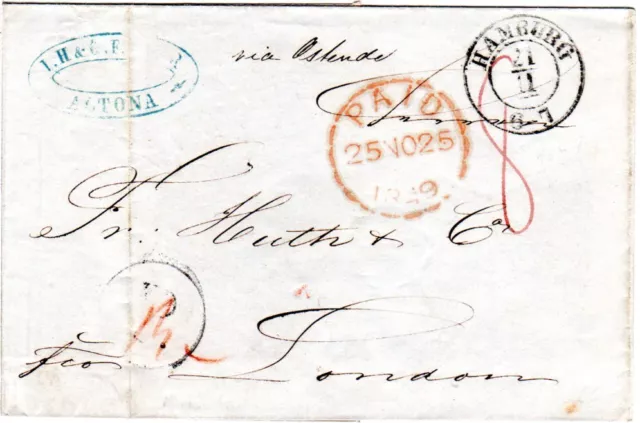 I. H & G. F. R.
ALTONA
via Ostende
HAMBURG
21
11
6-7
PAID
25 NO 25
1849
8
Fr: Huth & Co
fco London